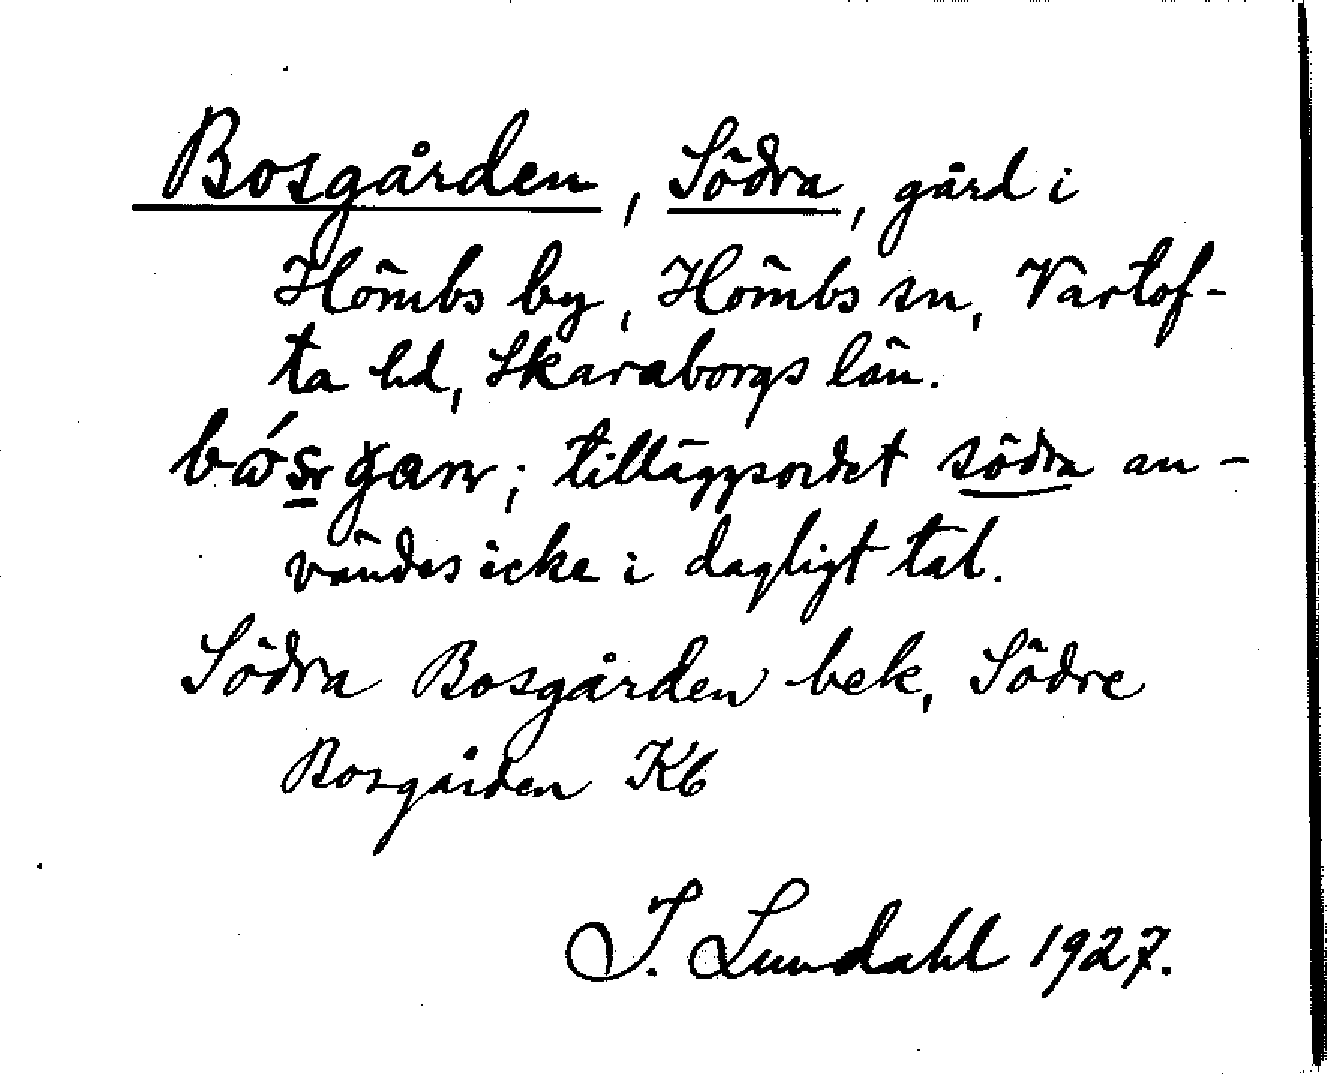 Bosgården, Södra, gård i
Hömbs by, Hömbs sn, Vartof-
ta hd, Skaraborgs län.
tilläggsordet södra an-
vändes icke i dagligt tal.
Södra Bosgården bek, Södre
Bosgården Kb
I. Lundahl 1927.